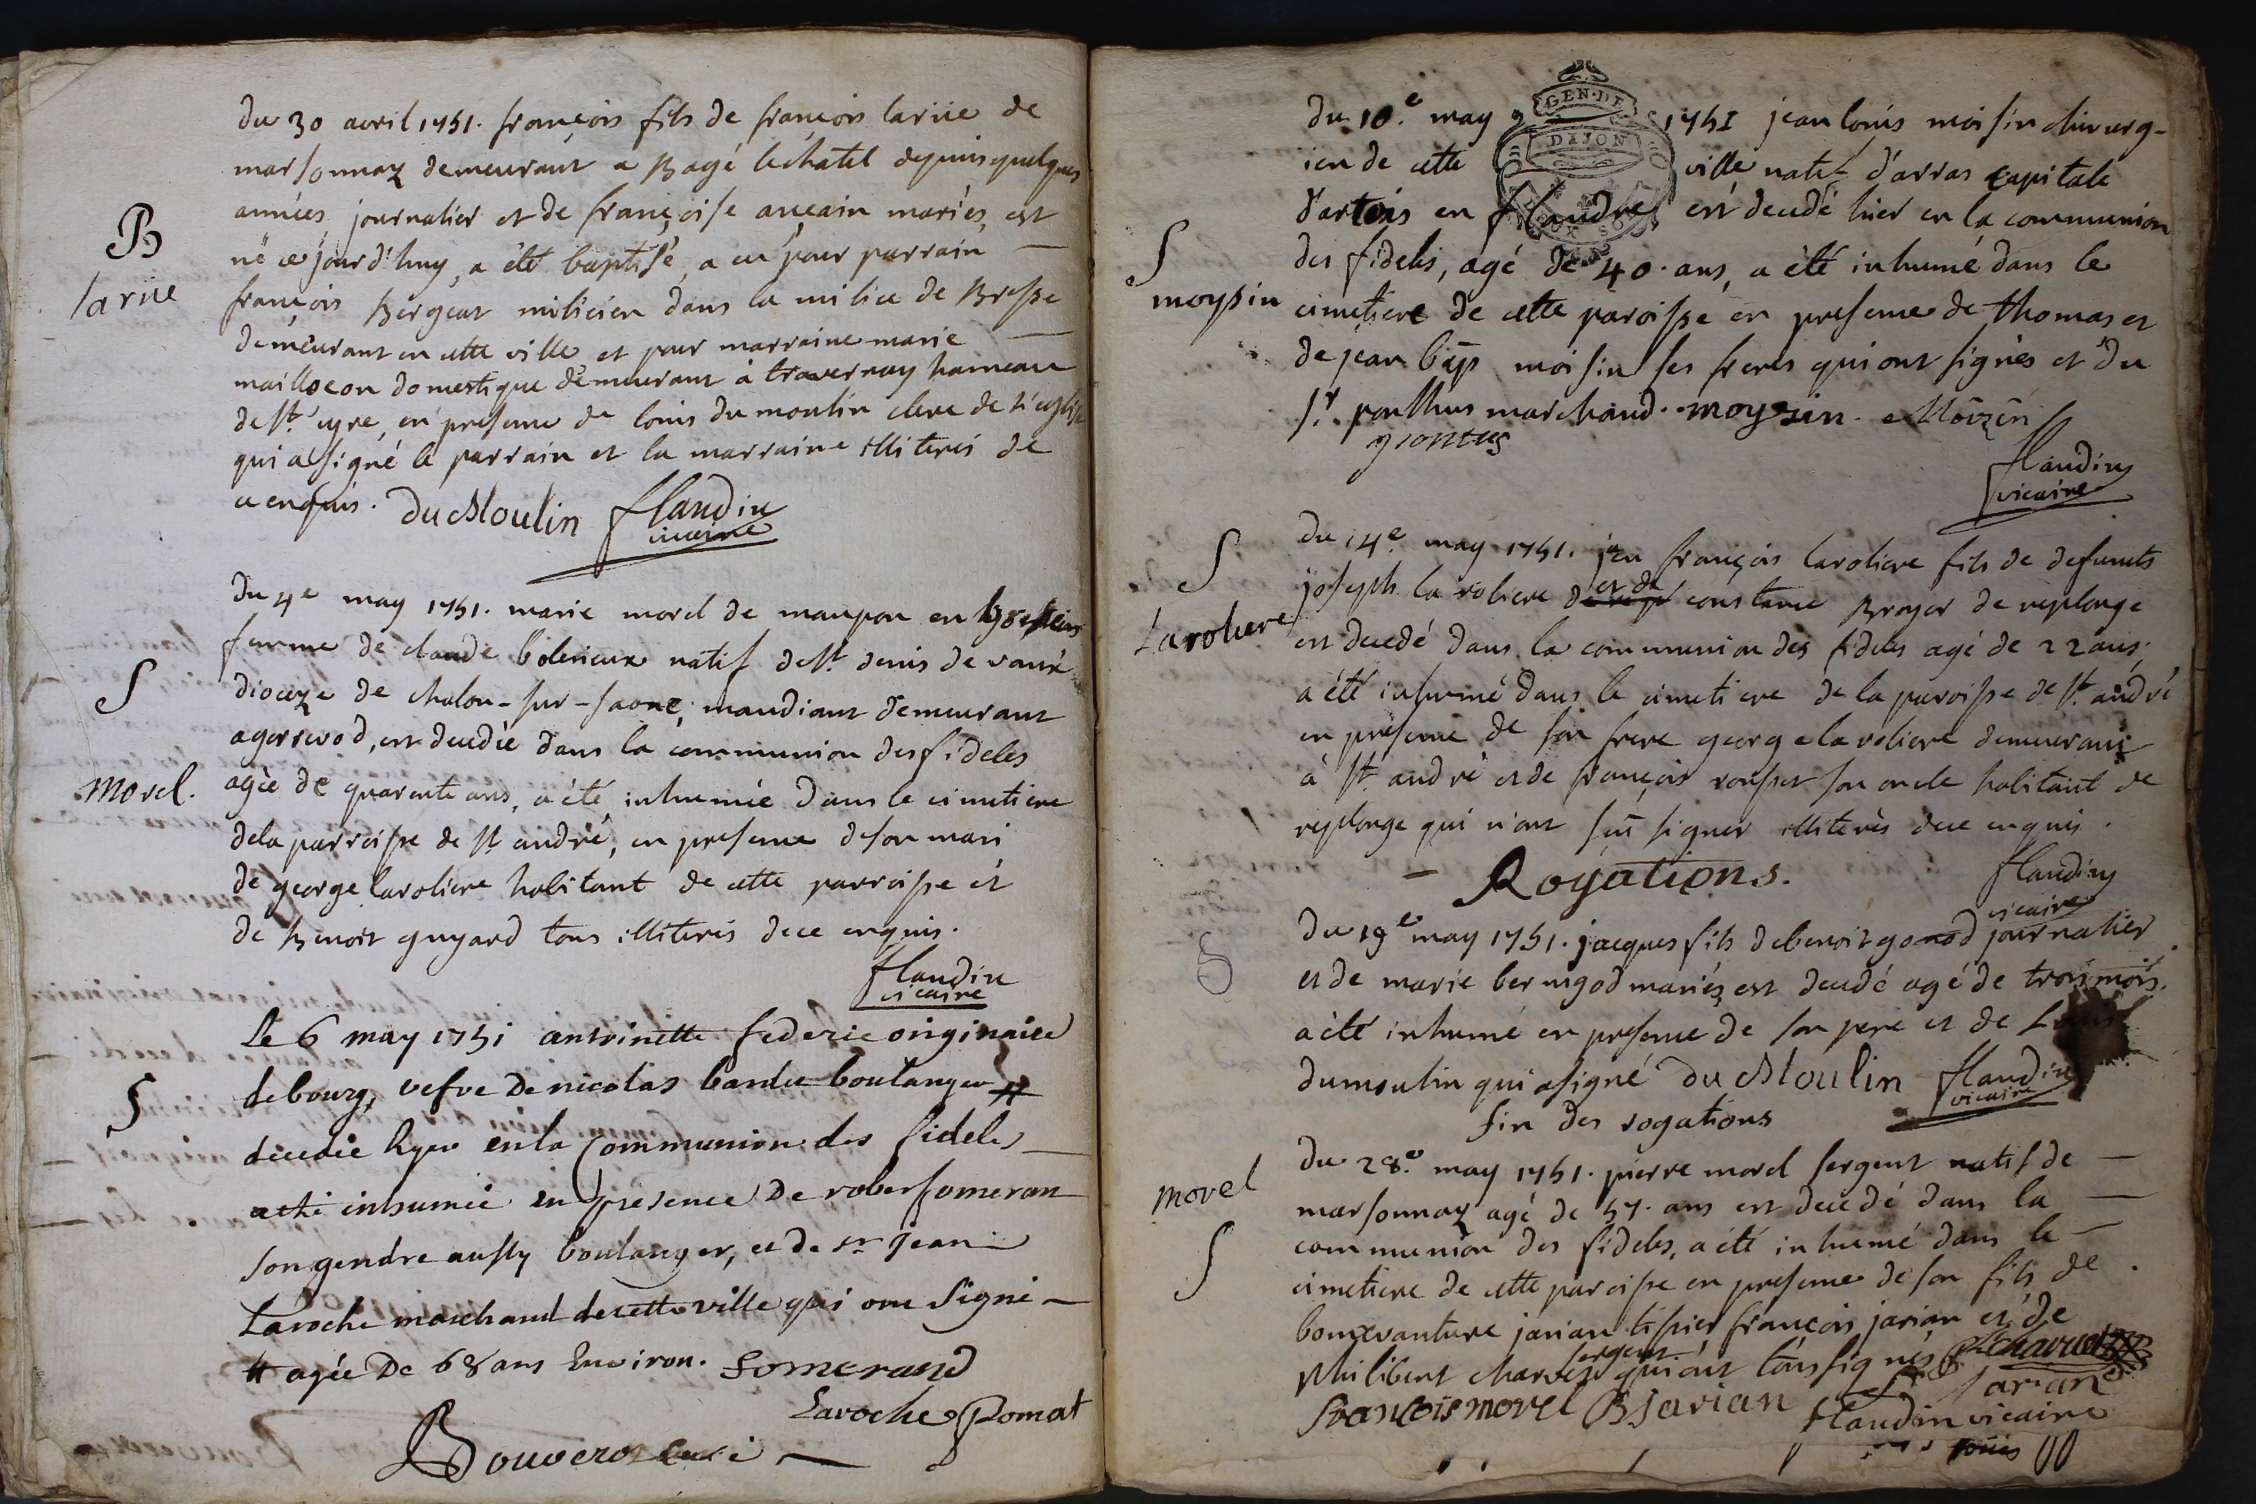 du 30 avril 1751. françois fils de françois larüe de
marsonnaz demeurant a Bagé lechatel depuis quelques
années, journalier et de françoise ançain mariés, est
né ce jourd'huy, a été baptisé, a eu pour parrain
B
larüe
françois Bergeat milicien dans la milice de Bresse
demeurant en cette ville et pour marraine marie
domestique demeurant à travernay hameau
de st cyre, en presence de louis du moulin clerc de l'eglise
qui a signé le parrain et la marraine illiterés de
ce enquis. DuMoulin flandin
vicaire
du 4e may 1751. marie morel de maupon en
femme de claude natif de st denis de vaux
S
dioceze de chalon-sur-saone, mandiant demeurant
a gorrevod, est decedée dans la communion des fideles
morel.
agée de quarente ans, a été inhumée dans le cimetiere
de la parroisse de st andré, en presence de son mari
de george laroliere habitant de cette parroisse et
de Benoit guyard tous illiterés de ce enquis.
flandin
vicaire
Le 6 may 1751 antoinette federic originaire
S
de bourg, vefve de nicolas bardet boulanger #
decedée hyer en la Communion des fideles
a été inhumée en presence de robert someran
son gendre aussy boulanger, et de sr jean
Laroche marchand de cette ville qui ont Signé
# agée De 68 ans Environ. somerand
Laroche Pomat
Bouverot curé
du 10.e may 1751 jean louis moisin chirurg-
GEN·DE
DIJON
ien de cette ville natif d'arras capitale
d'artois en flandre est decedé hier en la communion
S
moysin
des fideles, agé de 40. ans, a été inhumé dans le
cimetiere de cette paroisse en presence de thomas et
de jean bap moisin ses freres qui ont signés et du
sr. ponthus marchand. moysin. Moizin
pontus
flandin
vicaire
du 14.e may 1751. jean françois laroliere fils de defunts
S
Laroliere
joseph la roliere et de constance Broyer de replonge
est decedé dans la communion des fideles agé de 22 ans,
a été inhumé dans le cimetiere de la paroisse de st. andré
en presence de son frere george la roliere demeurant
à st. andré et de françois rousset son oncle habitant de
replonge qui n'ont sçu signer illiterés de ce enquis.
- Rogations. flandin
vicaire
du 19e may 1751. jacques fils de benoit gonod journalier
S
et de marie berugod mariés, est decedé agé de trois mois.
a été inhumé en presence de son pere et de Louis
dumoulin qui a signé Du Moulin flandin
vicaire
fin des rogations
du 28.e may 1751. pierre morel sergent natif de
morel
S
marsonnaz agé de 57. ans est decedé dans la
communion des fideles, a été inhumé dans le
cimetiere de cette paroisse en presence de son fils de
bonavanture jarian tissier françois jarian et de
sergent
philibert charvet qui ont tous signés P charvet
francois morel B Jarian f jarian
flandin vicaire